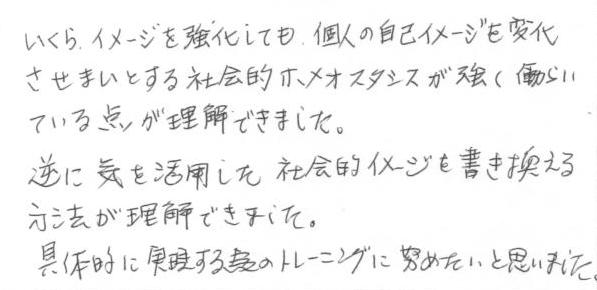 いくら、イメージを強化しても、個人の自己イメージを変化
させまいとする社会的ホメオスタシスが強く働らい
ている点が理解できました。
逆に気を活用した社会的イメージを書き換える
方法が理解できました。
具体的に実現する為のトレーニングに努めたいと思いました。